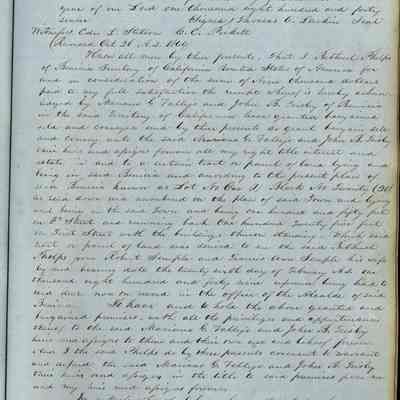 year of our Lord one thousand eight hundred and forty
seven (Signed) Thomas O. Larkin Seal
Witness Eden L. Stetson C. C.
(Received Oct 26 A.D.
Know all men by these presents, That I Bethuel Phelps
of Benicia Territory of California United States of America for
and in consideration of the sum of Nine thousand dollars
paid to my full satisfaction the receipt whereof is hereby acknow
ledged by Mariano G Vallejo and John B. Frisby of Benicia
in the said Territory of California have granted bargained
sold and conveyed and by these presents do grant bargain sell
and convey unto the said Mariano G Vallejo and John B. Frisby
their heirs and assigns forever all my right title interest and
estate in and to a certain tract or parcel of land lying and
being in said Benicia and according to the present plan of
said Benicia known as Lot No One (1) Block No Twenty (20)
as laid down and numbered on the plan of said Town and lying
and being in the said Town and being one hundred and fifty feet
on Street and running back One hundred Twenty five feet
on First Street with the buildings thereon standing. Which said
tract or parcel of land was deeded to me the said Bethuel
Phelps from Robert Semple and Frances Ann Semple his wife
by deed bearing date the twenty sixth day of February A.D. one
thousand eight hundred and forty nine reference being had to
said deed now on record in the office of the Alcalde of said
Benicia. To have and to hold the above granted and
bargained premises with all the privileges and appurtenances
thereof to the said Mariano G Vallejo and John B. Frisby
heirs and assigns to them and their own use and behoof forever
And I the said Phelps do by these presents covenant to warrant
and defend the said Mariano G Vallejo and John B. Frisby
their heirs and assigns in the title to said premises from me
and my heirs and assigns forever.